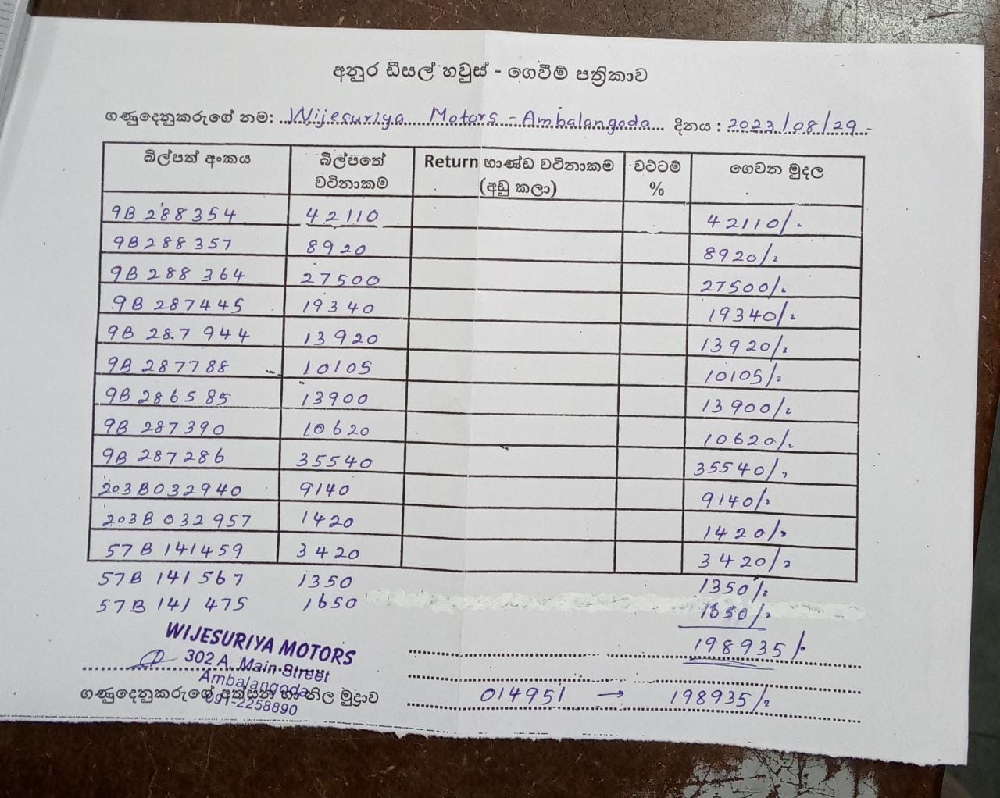 අනුර ඩීසල් හවුස් - ගෙවීම් පත්‍රිකාව
ගණුදෙනුකරුගේ නම: Wijesuriya Motors - Ambalangoda දිනය : 2023/08/29
බිල්පත් අංකය බිල්පතේ වටිනාකම Return භාණ්ඩ වටිනාකම (අඩු කලා) වට්ටම් % ගෙවන මුදල
9B 288354 42110 42110/-
9B 288357 8920 8920/-
9B 288 364 27500 27500/-
9B 287445 19340 19340/-
9B 287 944 13920 13920/-
9B 287788 10105 10105/-
9B 286585 13900 13900/-
9B 287390 10620 10620/-
9B 287286 35540 35540/-
203B032940 9140 9140/-
203B 032957 1420 1420/-
57B 141459 3420 3420/-
57B 141 567 1350 1350/-
57B 141 475 1650 1650/-
198935/-
WIJESURIYA MOTORS
302 A, Main Street
Ambalangoda
091-2258890
ගණුදෙනුකරුගේ අත්සන හා නිල මුද්‍රාව 014951 → 198935/-